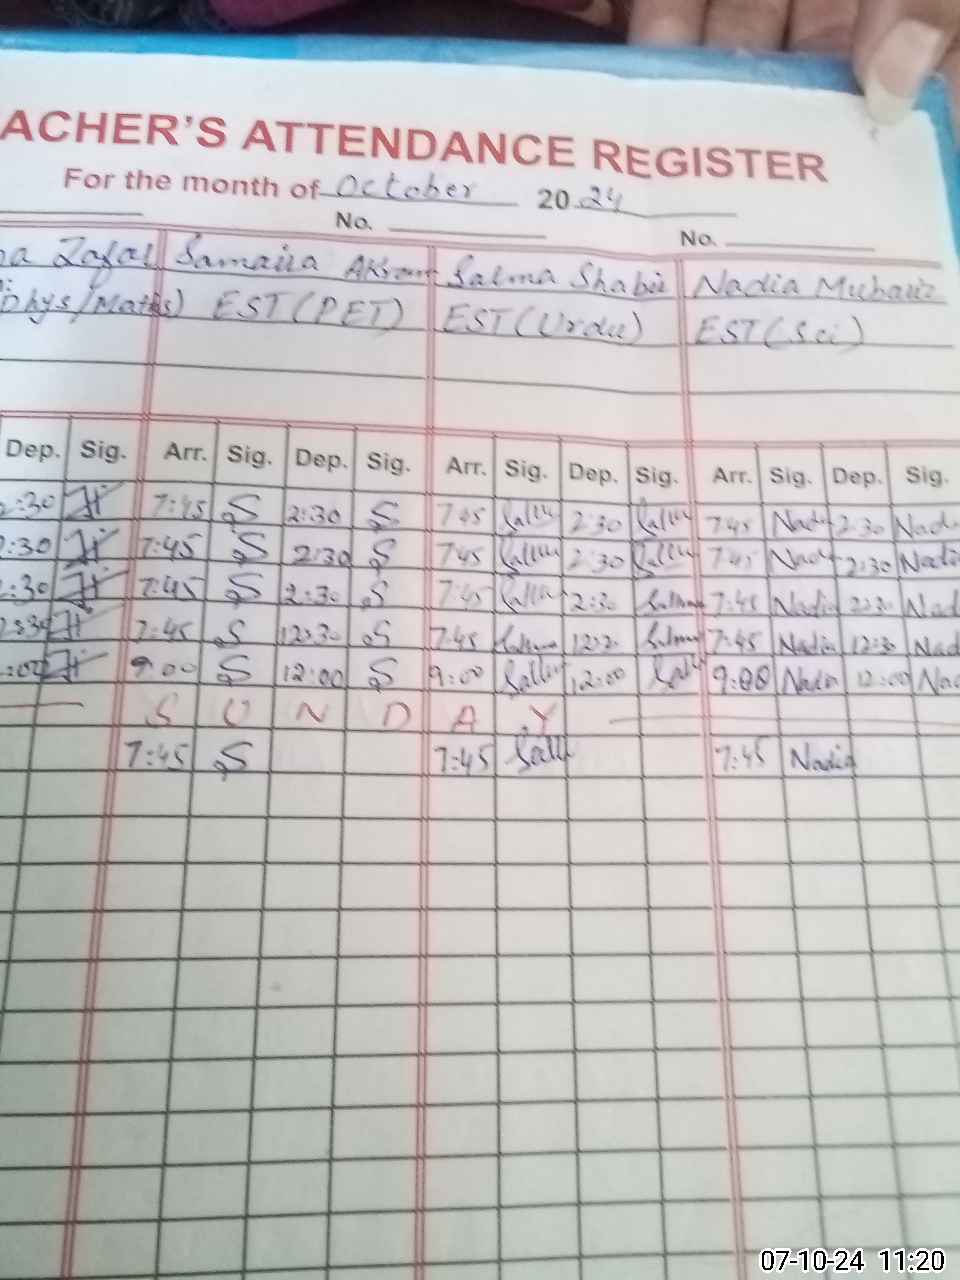 ACHER'S ATTENDANCE REGISTER
For the month of October 2024
No. No.
Zafar Samaila Akram Salma Shabir Nadia Muhariz
phys/Maths) EST(PET) EST(Urdu) EST(Sci)
Dep. Sig. Arr. Sig. Dep. Sig. Arr. Sig. Dep. Sig. Arr. Sig. Dep. Sig.
2:30 7:45 S 2:30 S 745 2:30 745 Nadi 2:30 Nad
2:30 7:45 S 2:30 S 745 2:30 7:45 Nad 2:30 Nadi
2:30 7:45 S 2:30 S 7:45 2:30 Salma 7:45 Nadia 2:30 Nad
7:45 S 12:30 S 7:45 Salma 12:30 Salma 7:45 Nadia 12:30 Nad
:00 9:00 S 12:00 S 9:00 12:00 9:00 Nadia 12:00 Nad
S U N D A Y
7:45 S 7:45 7:45 Nadia
07-10-24 11:20